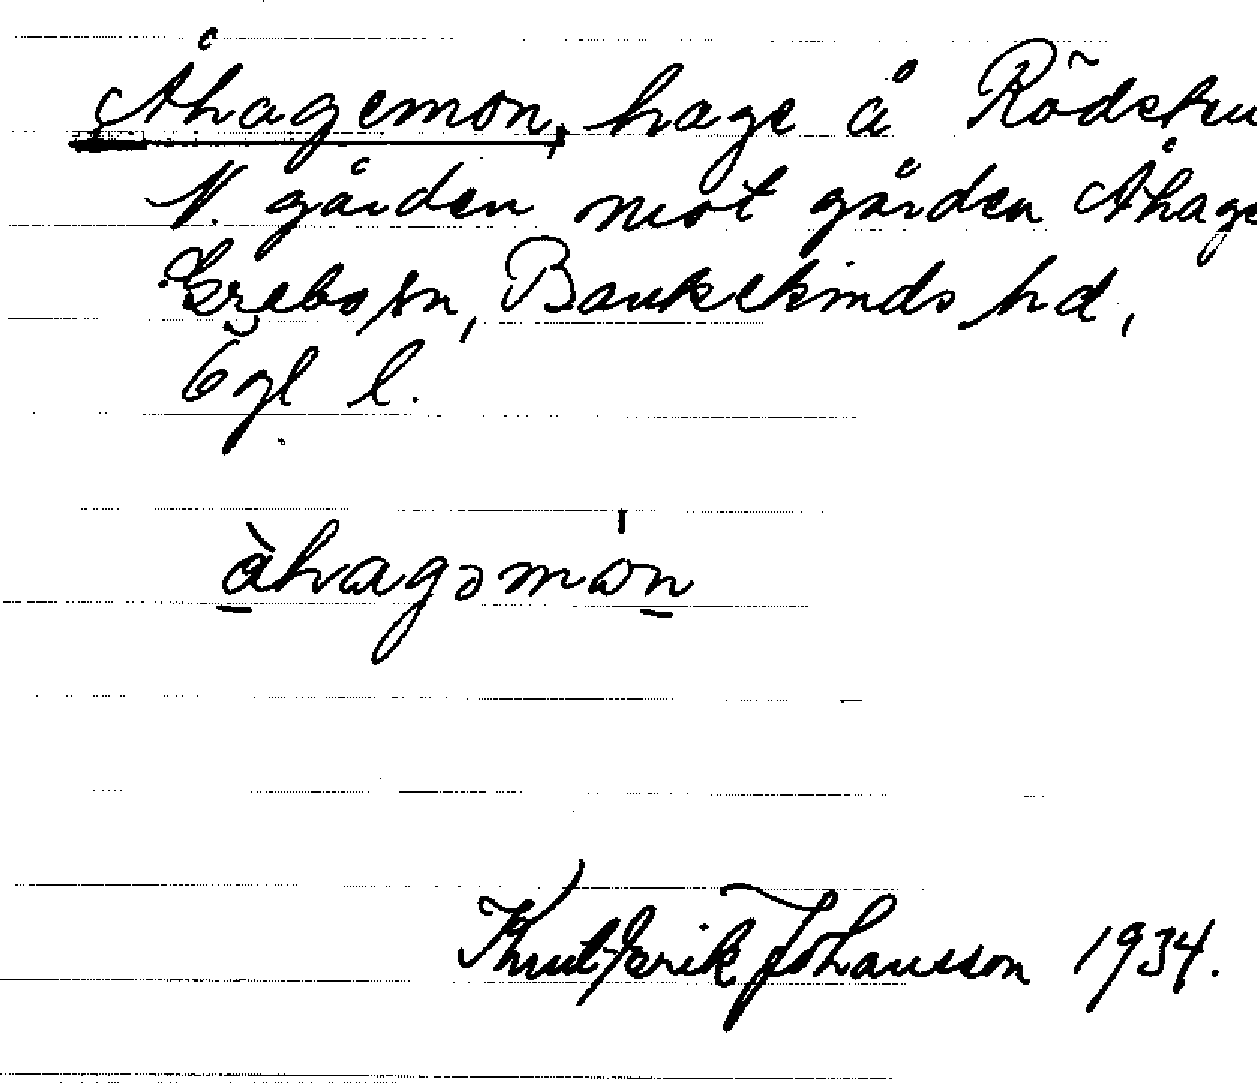 Åhagemon, hage å Rödstu
N. gården mot gården Åhage
Grebo sn, Bankekinds hd,
Ögl l.
àhagəmo̍n
Knut-Erik Johansson 1934.